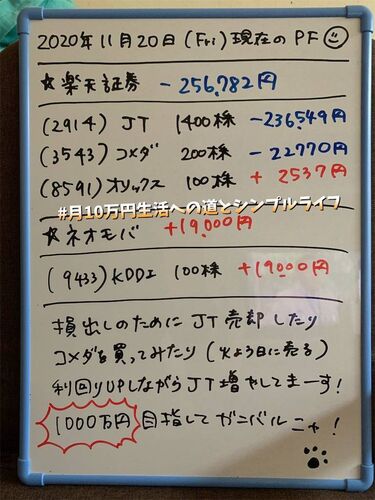 2020年11月20日(Fri)現在のPF
☆楽天証券 -256,782円
(2914) JT 1400株 -236,549円
(3543) コメダ 200株 -22770円
(8591) オリックス 100株 +2537円
#月10万円生活への道とシンプルライフ
☆ネオモバ +19,000円
(9433) KDDI 100株 +19000円
損出しのためにJT売却したり
コメダを買ってみたり(火よう日に売る)
利回りUPしながらJT増やしてまーす!
1000万円目指してガニバルニャ!